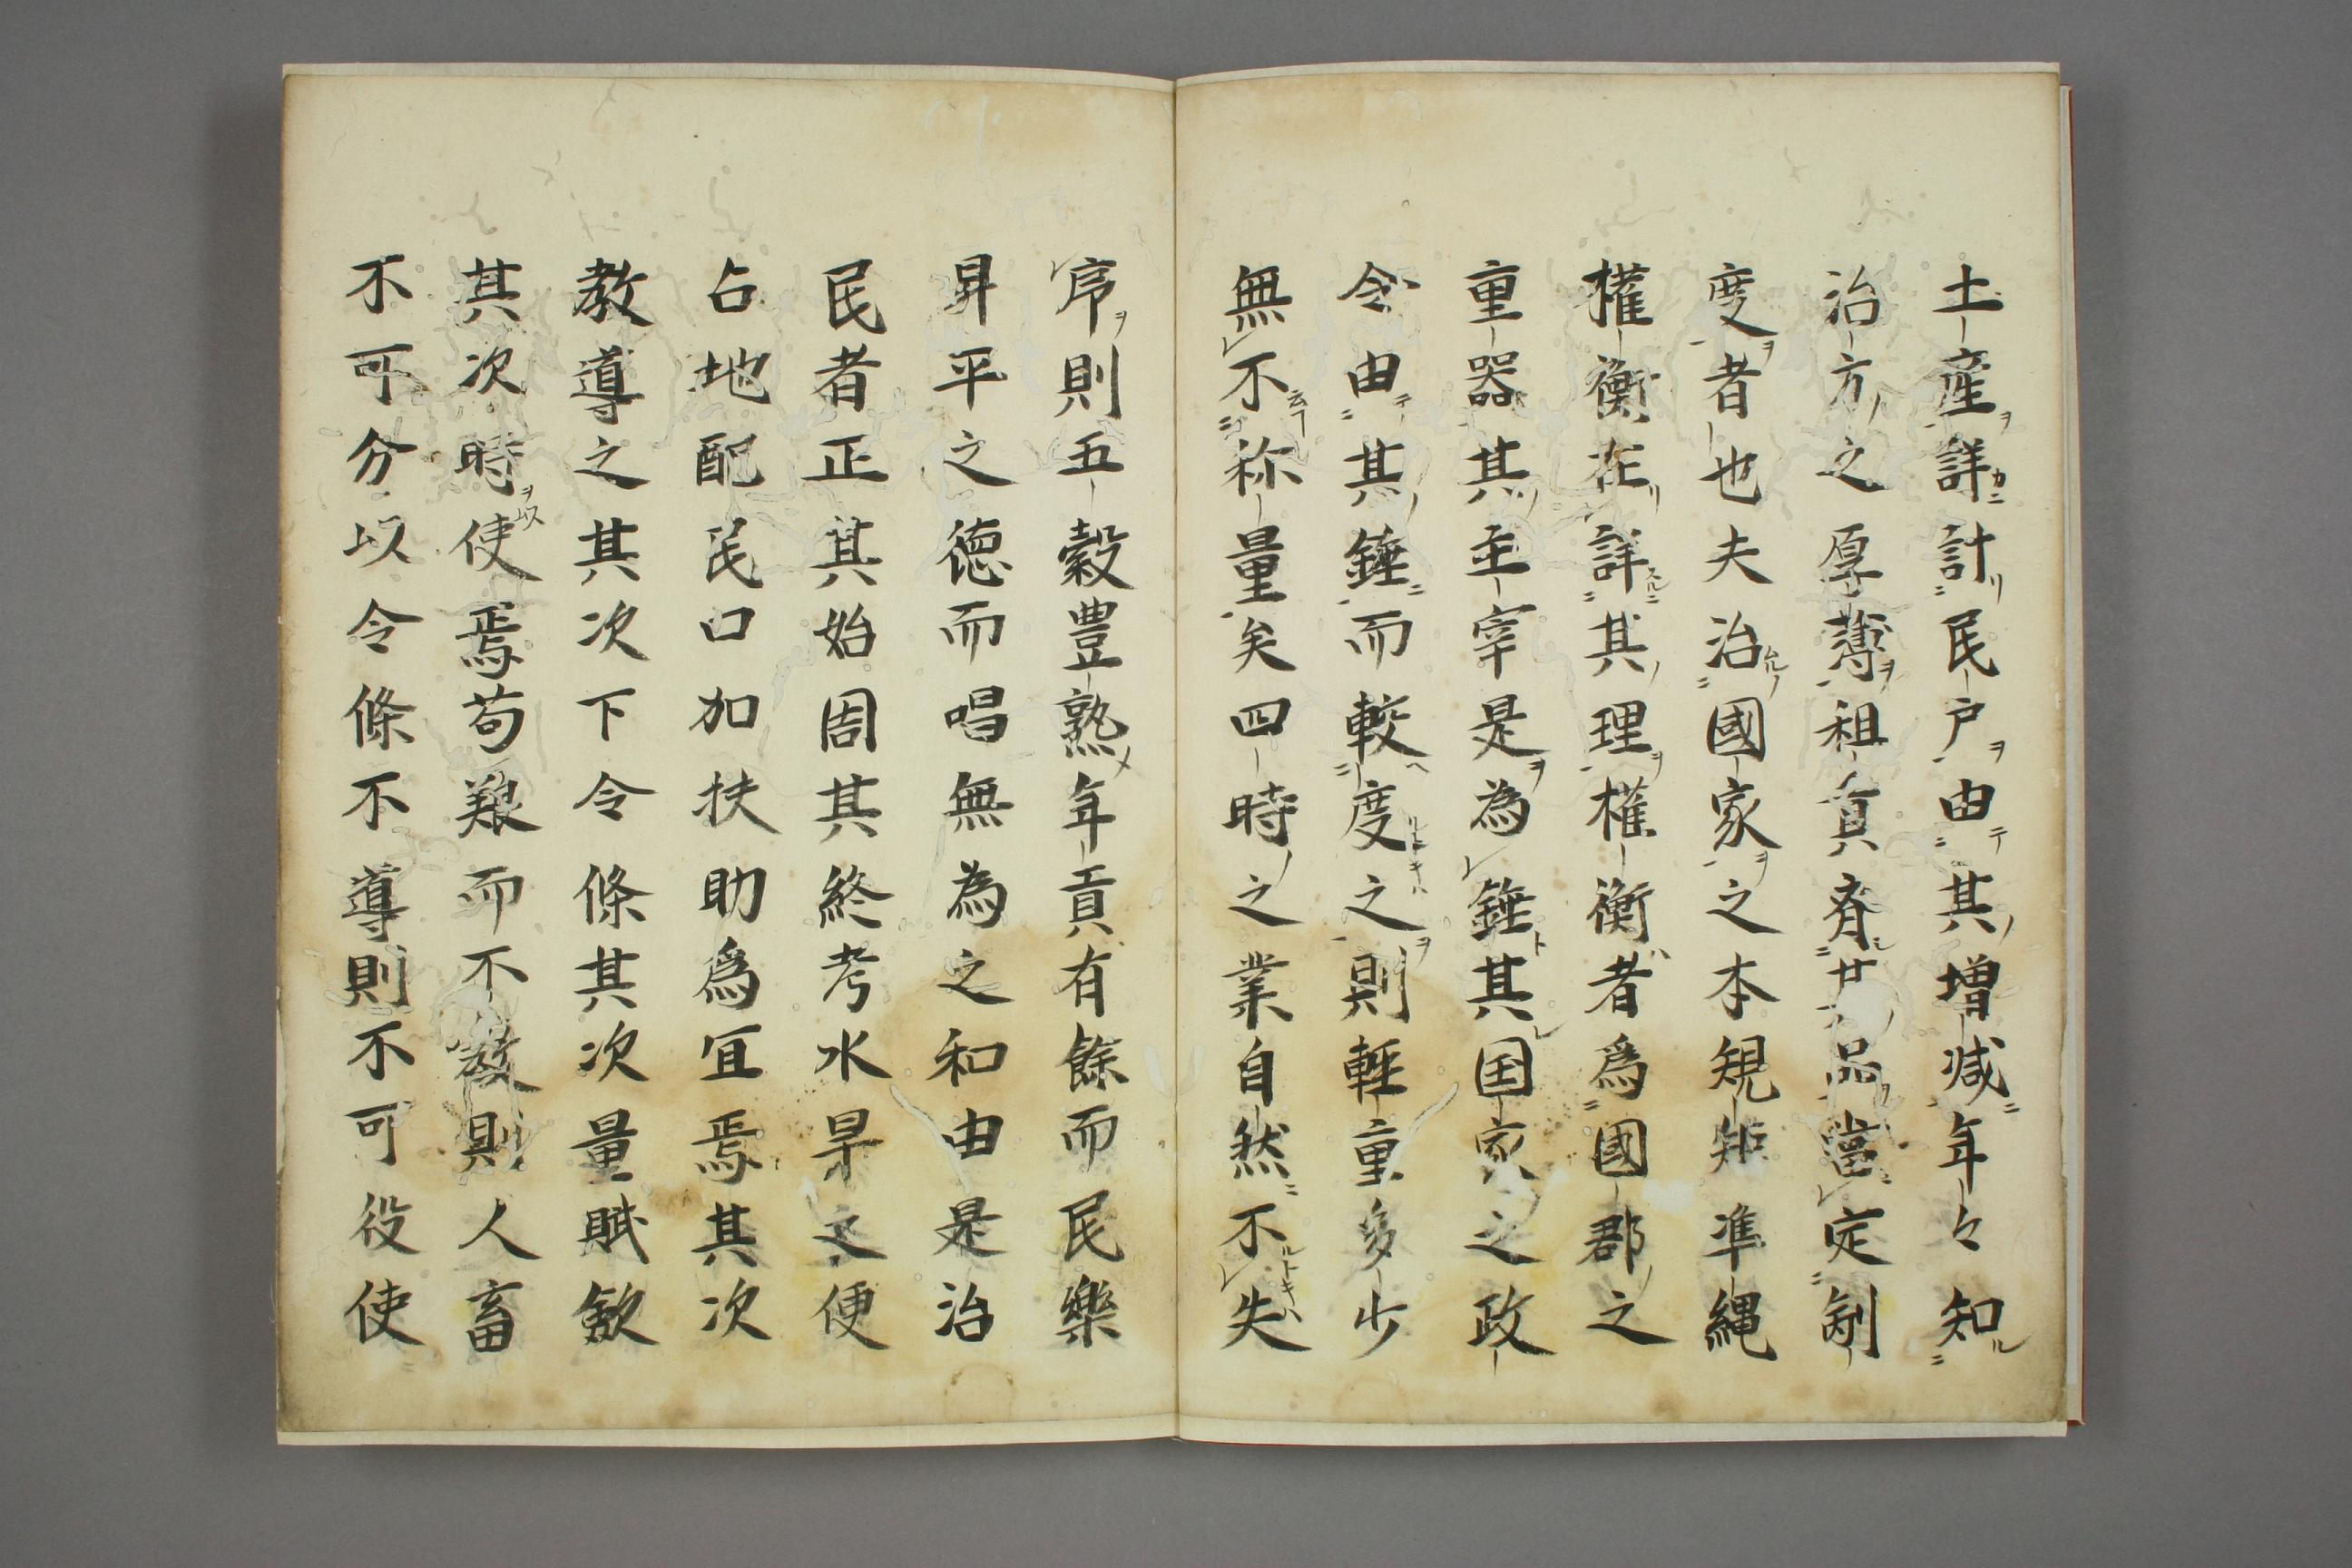 土産詳計民戸由其増減年々知
治方之厚薄租貢斉廿品當定制
度者也夫治國家之本規矩準縄
權衡在詳其理權衡者為國郡之
重器其主宰是為錘其国家之政
令由其錘而較度之則輕重多少
無不称量矣四時之業自然不失
序則五穀豊熟年貢有餘而民樂
昇平之徳而唱無為之和由是治
民者正其始周其終考水旱之便
占地配民口加扶助為宜焉其次
教導之其次下令條其次量賦斂
其次時使焉苟艱而不教則人畜
不可分以令條不導則不可役使